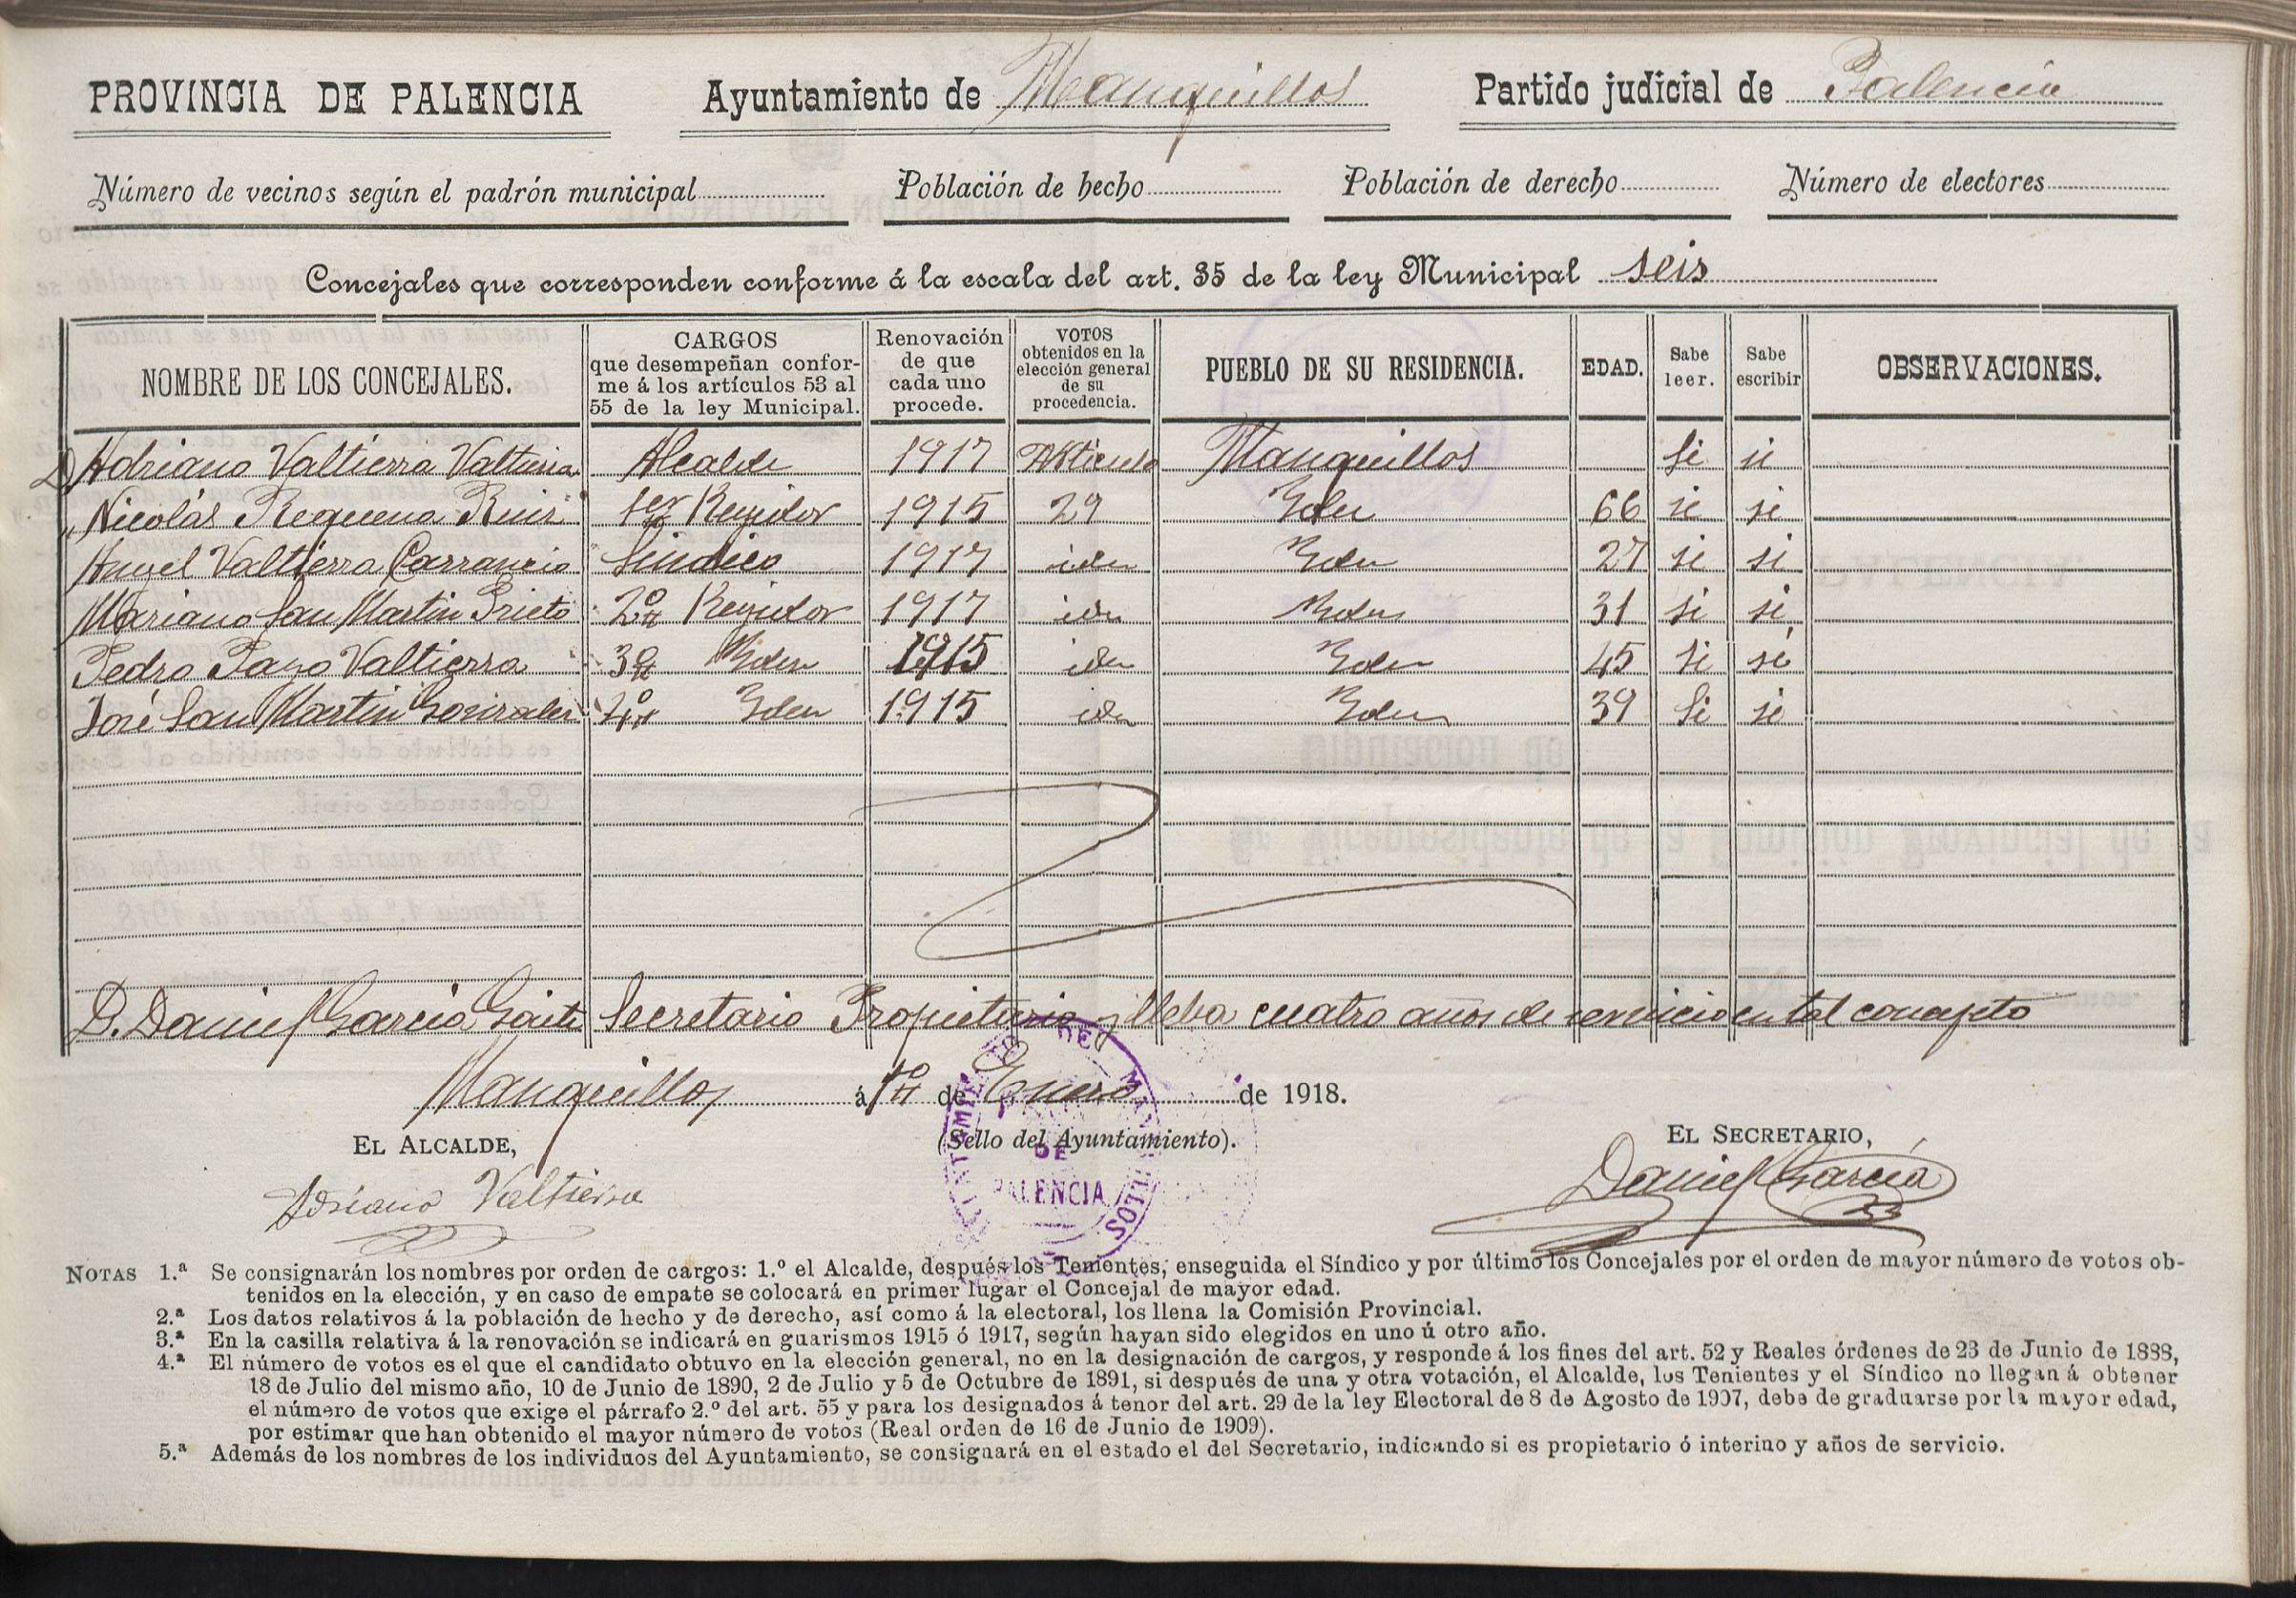 PROVINCIA DE PALENCIA Ayuntamiento de Manquillos Partido judicial de Palencia
Número de vecinos según el padrón municipal Población de hecho Población de derecho Número de electores
Concejales que corresponden conforme á la escala del art. 35 de la ley Municipal seis
NOMBRE DE LOS CONCEJALES. CARGOS que desempeñan confor- me á los artículos 53 al 55 de la ley Municipal. Renovación de que cada uno procede. VOTOS obtenidos en la elección general de su procedencia. PUEBLO DE SU RESIDENCIA. EDAD. Sabe leer. Sabe escribir OBSERVACIONES.
D. Adriano Valtierra Valtierra Alcalde 1917 Manquillos Si si
" Nicolás Requena Ruiz 1er Regidor 1915 29 Iden 66 si si
Angel Valtierra Carrancio Sindico 1917 iden Iden 27 si si
Mariano San Martin Prieto 2º Regidor 1917 iden Iden 31 si si
Pedro Pazo Valtierra 3º Iden 1915 iden Iden 45 si si
José San Martin Gonzalez 4º Iden 1915 iden Iden 39 Si si
D. Daniel Garcia Gaite Secretario Propietario y lleba cuatro años de servicio en tal concepto
Manquillos á 1º de Enero de 1918.
EL ALCALDE, (Sello del Ayuntamiento). EL SECRETARIO,
AYUNTAMIENTO DE MANQUILLOS
DE
PALENCIA
Adriano Valtierra Daniel Garcia
NOTAS 1.ª Se consignarán los nombres por orden de cargos: 1.º el Alcalde, después los Tenientes, enseguida el Síndico y por último los Concejales por el orden de mayor número de votos ob-
tenidos en la elección, y en caso de empate se colocará en primer lugar el Concejal de mayor edad.
2.ª Los datos relativos á la población de hecho y de derecho, así como á la electoral, los llena la Comisión Provincial.
3.ª En la casilla relativa á la renovación se indicará en guarismos 1915 ó 1917, según hayan sido elegidos en uno ú otro año.
4.ª El número de votos es el que el candidato obtuvo en la elección general, no en la designación de cargos, y responde á los fines del art. 52 y Reales órdenes de 23 de Junio de 1888,
18 de Julio del mismo año, 10 de Junio de 1890, 2 de Julio y 5 de Octubre de 1891, si después de una y otra votación, el Alcalde, los Tenientes y el Síndico no llegan á obtener
el número de votos que exige el párrafo 2.º del art. 55 y para los designados á tenor del art. 29 de la ley Electoral de 8 de Agosto de 1907, debe de graduarse por la mayor edad,
por estimar que han obtenido el mayor número de votos (Real orden de 16 de Junio de 1909).
5.ª Además de los nombres de los individuos del Ayuntamiento, se consignará en el estado el del Secretario, indicando si es propietario ó interino y años de servicio.